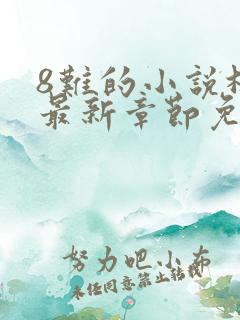 8難的小說
最新章節免
努力吧小布
未經同意禁止轉載